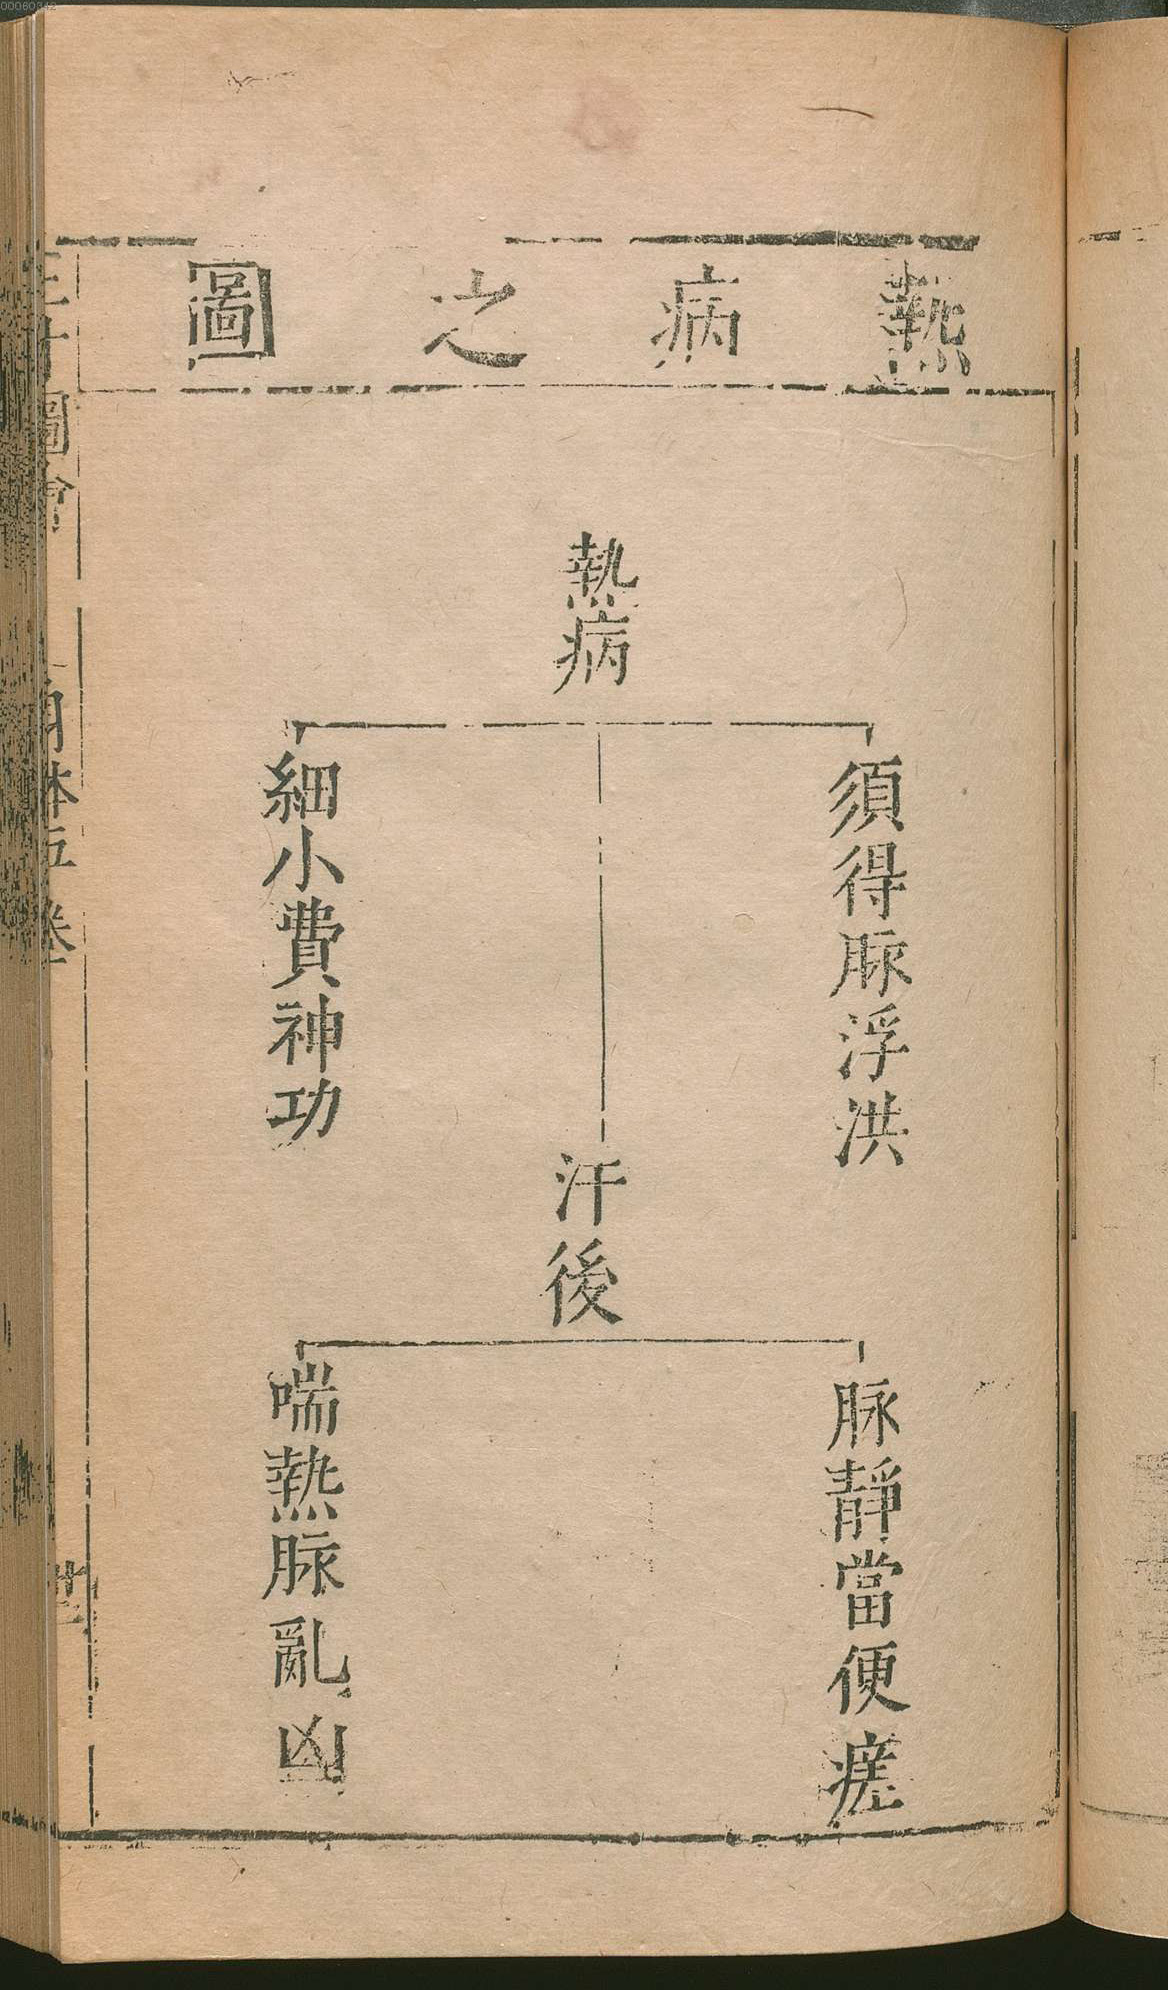 00060342
熱病之圖
熱病
須得脉浮洪
細小費神功
汗後
脉靜當便瘥
喘熱脉亂凶
三才圖會
身体五卷